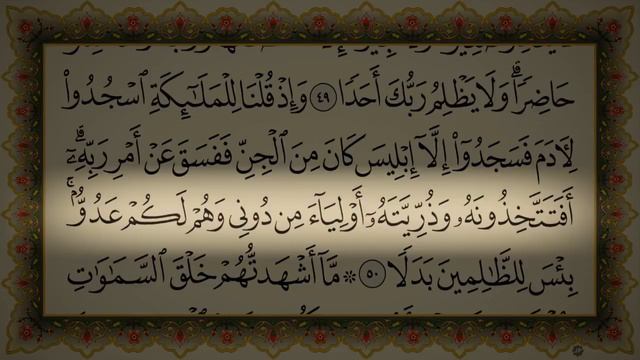 حَاضِرًا ۗ وَلَا يَظْلِمُ رَبُّكَ أَحَدًا ﴿٤٩﴾ وَإِذْ قُلْنَا لِلْمَلَٰٓئِكَةِ ٱسْجُدُوا۟
لِـَٔادَمَ فَسَجَدُوٓا۟ إِلَّآ إِبْلِيسَ كَانَ مِنَ ٱلْجِنِّ فَفَسَقَ عَنْ أَمْرِ رَبِّهِۦٓ ۗ
أَفَتَتَّخِذُونَهُۥ وَذُرِّيَّتَهُۥٓ أَوْلِيَآءَ مِن دُونِى وَهُمْ لَكُمْ عَدُوٌّۢ ۚ
بِئْسَ لِلظَّٰلِمِينَ بَدَلًا ﴿٥٠﴾ ۞ مَّآ أَشْهَدتُّهُمْ خَلْقَ ٱلسَّمَٰوَٰتِ